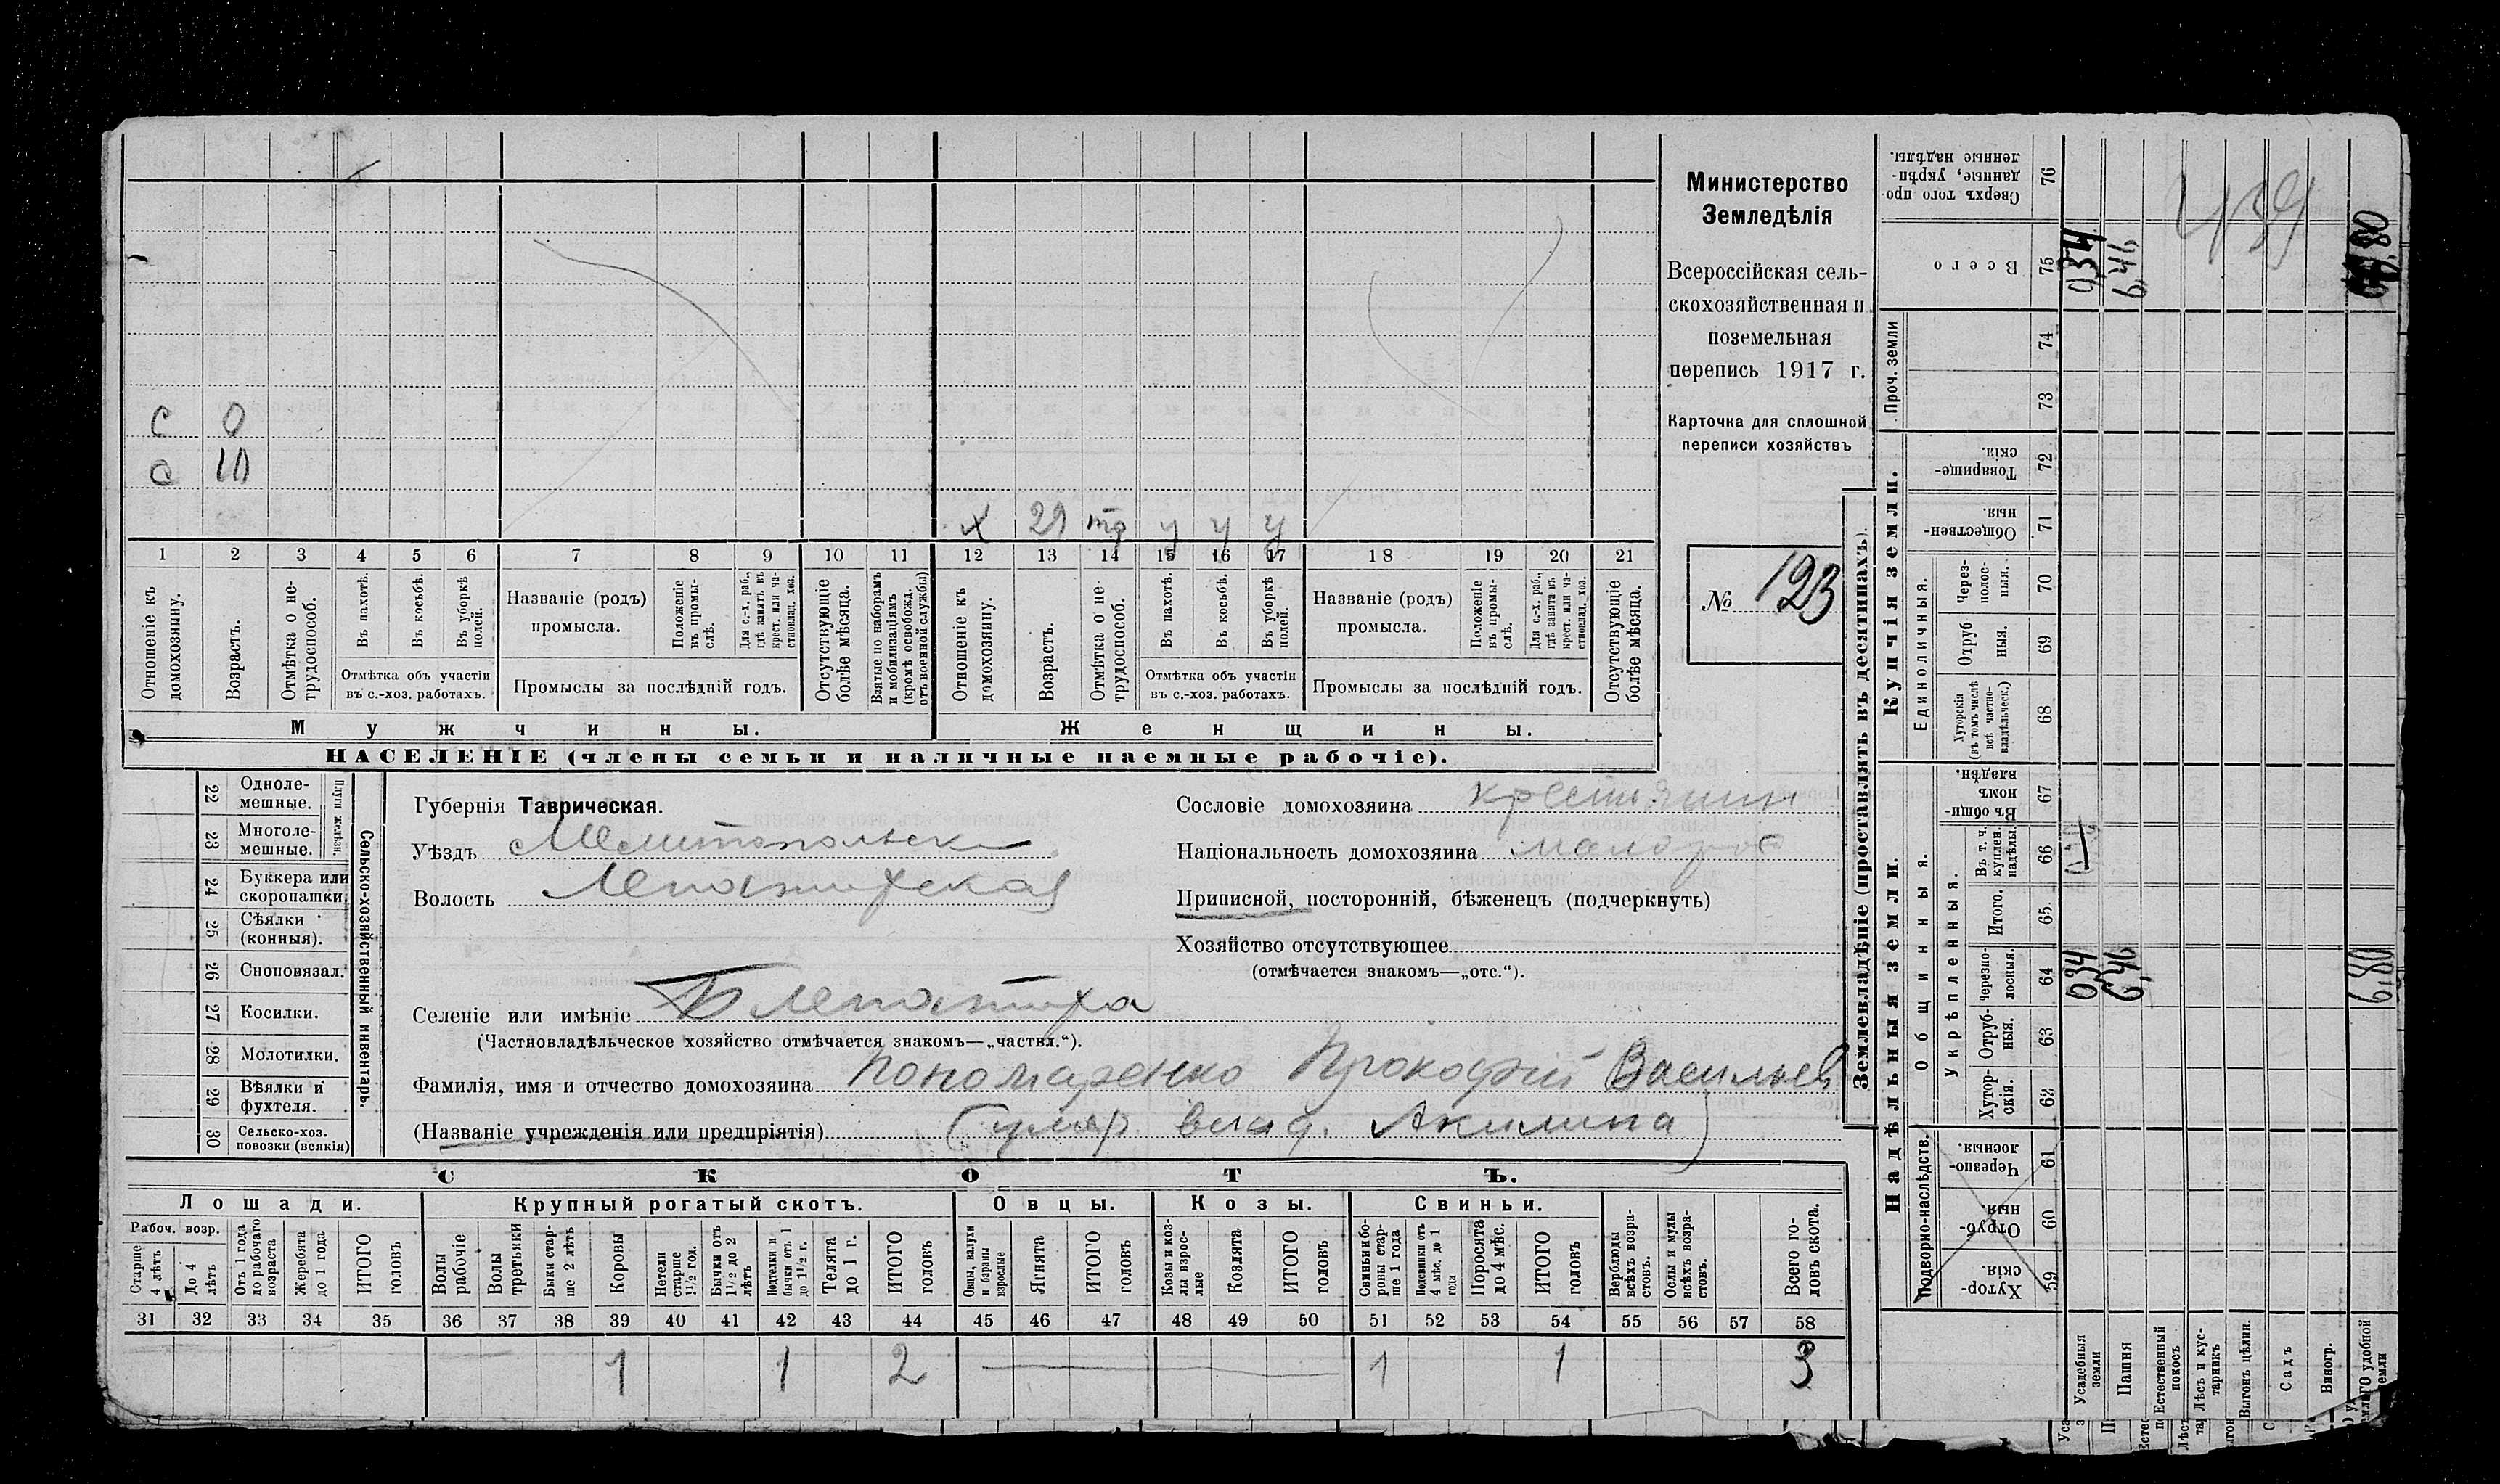 С 0
С 10
х 29 тр у у у
1 2 3 4 5 6 7 8 9 10 11 12 13 14 15 16 17 18 19 20 21
Отношеніе къ домохозяину.
Возрастъ.
Отмѣтка о нетрудоспособ.
Въ пахотѣ.
Въ косьбѣ.
Въ уборкѣ полей.
Отмѣтка объ участіи
въ с.-хоз. работахъ.
Названіе (родъ)
промысла.
Положеніе въ промыслѣ.
Для с.-х. раб., гдѣ занятъ въ крест. или частновлад. хоз.
Промыслы за послѣдній годъ.
Отсутствующіе болѣе мѣсяца.
Взятые по наборамъ и мобилизаціямъ (кромѣ освобожд. отъ военной службы)
Отношеніе къ домохозяину.
Возрастъ.
Отмѣтка о нетрудоспособ.
Въ пахотѣ.
Въ косьбѣ.
Въ уборкѣ полей.
Отмѣтка объ участіи
въ с.-хоз. работахъ.
Названіе (родъ)
промысла.
Положеніе въ промыслѣ.
Для с.-х. раб., гдѣ занята въ крест. или частновлад. хоз.
Промыслы за послѣдній годъ.
Отсутствующіе болѣе мѣсяца.
Мужчины. Женщины.
НАСЕЛЕНІЕ (члены семьи и наличные наемные рабочіе).
Министерство
Земледѣлія
Всероссійская сель-
скохозяйственная и
поземельная
перепись 1917 г.
Карточка для сплошной
переписи хозяйствъ
№ 123
Сельско-хозяйственный инвентарь.
Плуги желѣзн.
22 Одноле-
мешные.
23 Многоле-
мешные.
24 Буккера или
скоропашки
25 Сѣялки
(конныя).
26 Сноповязал.
27 Косилки.
28 Молотилки.
29 Вѣялки и
фухтеля.
30 Сельско-хоз.
повозки (всякія)
Губернія Таврическая.
Уѣздъ Мелитопольск
Волость Лепатихская
Сословіе домохозяина крестьянин
Національность домохозяина малорос
Приписной, посторонній, бѣженецъ (подчеркнуть)
Хозяйство отсутствующее
(отмѣчается знакомъ—„отс.“).
Селеніе или имѣніе Б Лепатиха
(Частновладѣльческое хозяйство отмѣчается знакомъ—„частвл.“).
Фамилія, имя и отчество домохозяина Пономаренко Прокофій Васильев
(Названіе учрежденія или предпріятія) (умер. Акилина)
СКОТЪ.
Лошади. Крупный рогатый скотъ. Овцы. Козы. Свиньи.
Рабоч. возр.
Старше 4 лѣтъ
До 4 лѣтъ
Отъ 1 года до рабочаго возраста
Жеребята до 1 года
ИТОГО головъ
Волы рабочіе
Волы третьяки
Быки старше 2 лѣтъ
Коровы
Нетели старше 1½ год.
Бычки отъ 1½ до 2 лѣтъ
Подтелки и бычки отъ 1 до 1½ г.
Телята до 1 г.
ИТОГО головъ
Овцы, валухи и бараны взрослые
Ягнята
ИТОГО головъ
Козы и козлы взрослые
Козлята
ИТОГО головъ
Свиньи и боровы старше 1 года
Подсвинки отъ 4 мѣс. до 1 года
Поросята до 4 мѣс.
ИТОГО головъ
Верблюды всѣхъ возрастовъ.
Ослы и мулы всѣхъ возрастовъ.
Всего головъ скота.
31 32 33 34 35 36 37 38 39 40 41 42 43 44 45 46 47 48 49 50 51 52 53 54 55 56 57 58
1 1 2 1 1 3
Землевладѣніе (проставлять въ десятинахъ).
Надѣльныя земли.
Купчія земли.
Проч. земли
Подворно-наслѣдств.
Общинныя.
Укрѣпленныя.
Единоличныя.
Хуторскія. 59
Отрубныя. 60
Черезполосныя. 61
Хуторскія. 62
Отрубныя. 63
Черезполосныя. 64
Итого. 65
Въ т. ч. куплен. надѣлы. 66
Въ общинномъ владѣн. 67
Хуторскія (въ томъ числѣ всѣ частновладѣльческ.) 68
Отрубныя. 69
Черезполосныя. 70
Общественныя. 71
Товарищескія. 72
73
74
Всего 75
Сверхъ того проданные, укрѣпленные надѣлы. 76
Усадебныя земли 0,34 0,34
Пашня 6,46 6,46
Естественный покосъ
Лѣсъ и кустарникъ
Выгонъ цѣлин.
Садъ
Виногр.
удобной земли 6,80 6,80